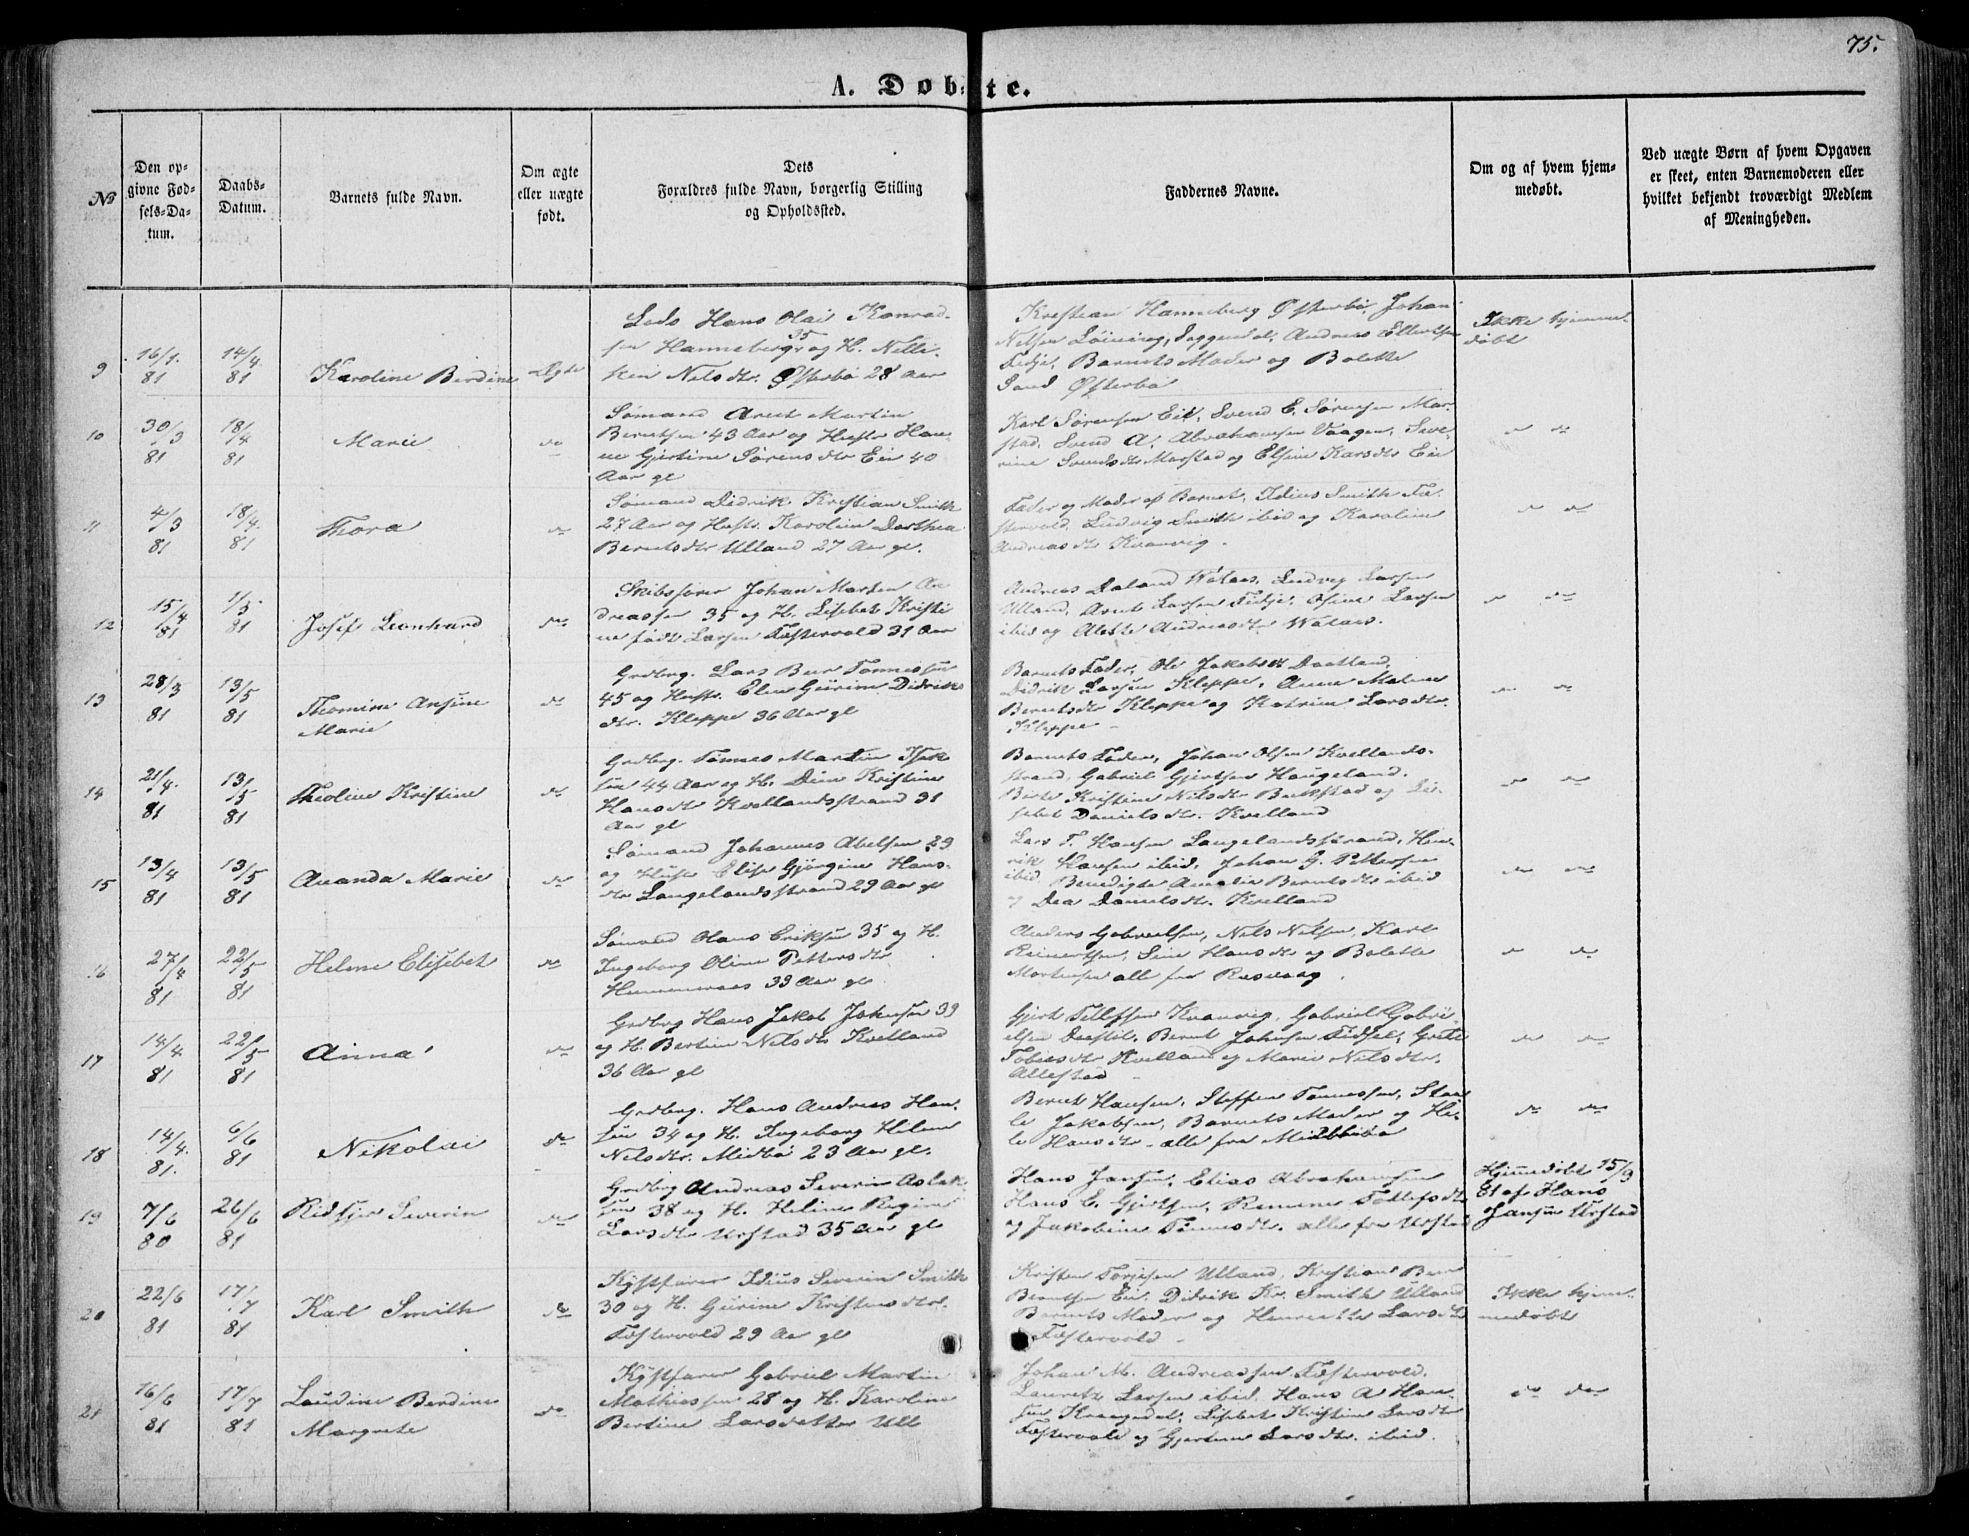 75.
A. Døbte.
№
Den op-
givne Fød-
sels-Da-
tum.
Daabs-
Datum.
Barnets fulde Navn.
Om ægte
eller uægte
født.
Dets
Forældres fulde Navn, borgerlig Stilling
og Opholdssted.
Faddernes Navne.
Om og af hvem hjem-
medøbt.
Ved uægte Børn af hvem Opgaven
er skeet, enten Barnemoderen eller
hvilket bekjendt troværdigt Medlem
af Menigheden.
9
16/1
81
14/4
81
Karoline Berdine
Ægte
Lods Hans Olai Konrad-
sen Hanneberg 35 og H. Nelli-
ken Nilsdtr. Østerbø 28 Aar
Krestian Hanneberg Østerbø, Johan
Nilsen Løining, Jeggendal, Andreas Ellertsen
Fidje, Barnets Moder og Bolette
Sand Østerbø
Ikke hjemme-
døbt
10
30/3
81
18/4
81
Marie
do
Sømand Arent Martin
Berntsen 43 Aar og Hustr. Han-
ne Gjertine Sørensdtr Eie 40
Aar gl
Karl Sørensen Eie, Svend E. Sørensen Mar-
stad, Svend A. Abrahamsen Vaagen, Seve-
rine Svendsdtr Marstad og Elsine Larsdtr Eie
do do
11
4/3
81
18/4
81
Thora
do
Sømand Didrik Krestian Smith
27 Aar og Hustr. Karoline Dorthea
Berntsdtr Ulland 27 Aar gl.
Fader og Moder af Barnet, Idius Smith Fæ-
stervold, Ludvig Smith ibid og Karoline
Andreasdtr Kvanvig.
do do
12
15/4
81
1/5
81
Josef Leonhard
do
Skibsfører Johan Marten An-
dreassen 35 og H. Lisbet Kristi-
ne født Larsen Fæstervold 31 Aar
Andreas Daland Wataas, Ludvig Larsen
Ulland, Arnt Larsen Fidje, Osine Larsen
ibid og Alette Andreasdtr Wataas.
do do
13
28/3
81
13/5
81
Thomine Ansine
Marie
do
Grdbrg. Lars Beer Tønnessen
45 og Hustr. Elen Gurine Didriks-
dtr. Kleppe 36 Aar gl
Barnets Fader, Ole Jakobsen Daatland,
Didrik Larsen Kleppe, Anne Malene
Berntsdtr Kleppe og Katrine Larsdtr.
Kleppe
do do
14
21/4
81
13/5
81
Theoline Kristine
do
Grdbrg. Tønnes Martin Isak-
sen 44 Aar og H. Dine Kristine
Hansdtr Kvellandsstrand 31
Aar gl
Barnets Fader, Johan Olsen Kvellands-
strand, Gabriel Gjertsen Haugeland,
Berte Kristine Nilsdtr Bukstad og Li-
sebet Danielsdtr. Kvelland
do do
15
13/4
81
13/5
81
Ananda Marie
do
Sømand Johannes Abelsen 29
og Hust Elise Gjørgine Hans-
dtr Langelandsstrand 29 Aar gl
Lars T. Hansen Langelandsstrand, Hen-
rik Hansen ibid, Johan G. Pettersen
ibid Benedigte Amalie Berntsdtr ibid
og Dea Danielsdtr. Kvelland
do do
16
27/4
81
22/5
81
Helene Elisebet
do
Sømand Olaus Eriksen 35 og H.
Ingeborg Oline Pettersdtr
33 Aar gl
Anders Gabrielsen, Nels Nelsen, Karl
Reinertsen, Sine Hansdtr og Bolette
Mortensen alle fra Rasvaag.
do do
17
14/4
81
22/5
81
Anna
do
Grdbrg Hans Jakob Johnsen 39
og H. Bertine Nilsdtr Kvelland
36 Aar gl
Gjert Tellefsen Kvanvig, Gabriel Gabri-
elsen Drestil, Bernt Johnsen Fidsel, Grete
Tobiasdtr Kvelland og Marie Nilsdtr.
Allestad
do do
18
14/4
81.
6/6
81
Nikolai
do
Grdbrg. Hans Andreas Han-
sen 34 og H. Ingeborg Helene
Nilsdtr. Midbø 23 Aar gl.
Bernt Hansen, Steffen Tønnessen, Staa-
le Jakobsen, Barnets Moder og He-
le Hansdtr – alle fra Midbø
do do
19
7/6
80
26/6
81
Ridsjer Severin
do
Grdbrg Andreas Severin Aslak-
sen 38 og H. Heline Regine
Larsdtr Urstad 35 Aar gl
Hans Jansen, Elias Abrahamsen
Hans E. Gjertsen, Ramine Tollefsdtr
og Jakobine Tønnesdtr. alle fra Urstad
Hjemedøbt 15/9
81 af Hans
Jansen Urstad
20
22/6
81
17/7
81
Karl Smith
do
Kystfarer Idius Severin Smith
30 og H. Gurine Kristensdtr.
Fæstervold 29 Aar gl
Kristen Torjesen Ulland, Krestian Beer
Berntsen Eie, Didrik Kr. Smith Ulland
Barnets Moder og Henriette Larsdtr
Fæstervold –
Ikke hjem-
medøbt
21
16/6
81
17/7
81
Laudine Berdine
Margrete
do
Kystfarer Gabriel Martin
Mathiassen 28 og H. Karoline
Bertine Larsdatter Ull
Johan M. Andreassen Fæstervold.
Lauretz Larsen ibid. Hans A Han-
sen Kragedal, Lisbet Kristine Larsdtr
Fæstervold og Gjertine Larsdtr. ibid.
do do